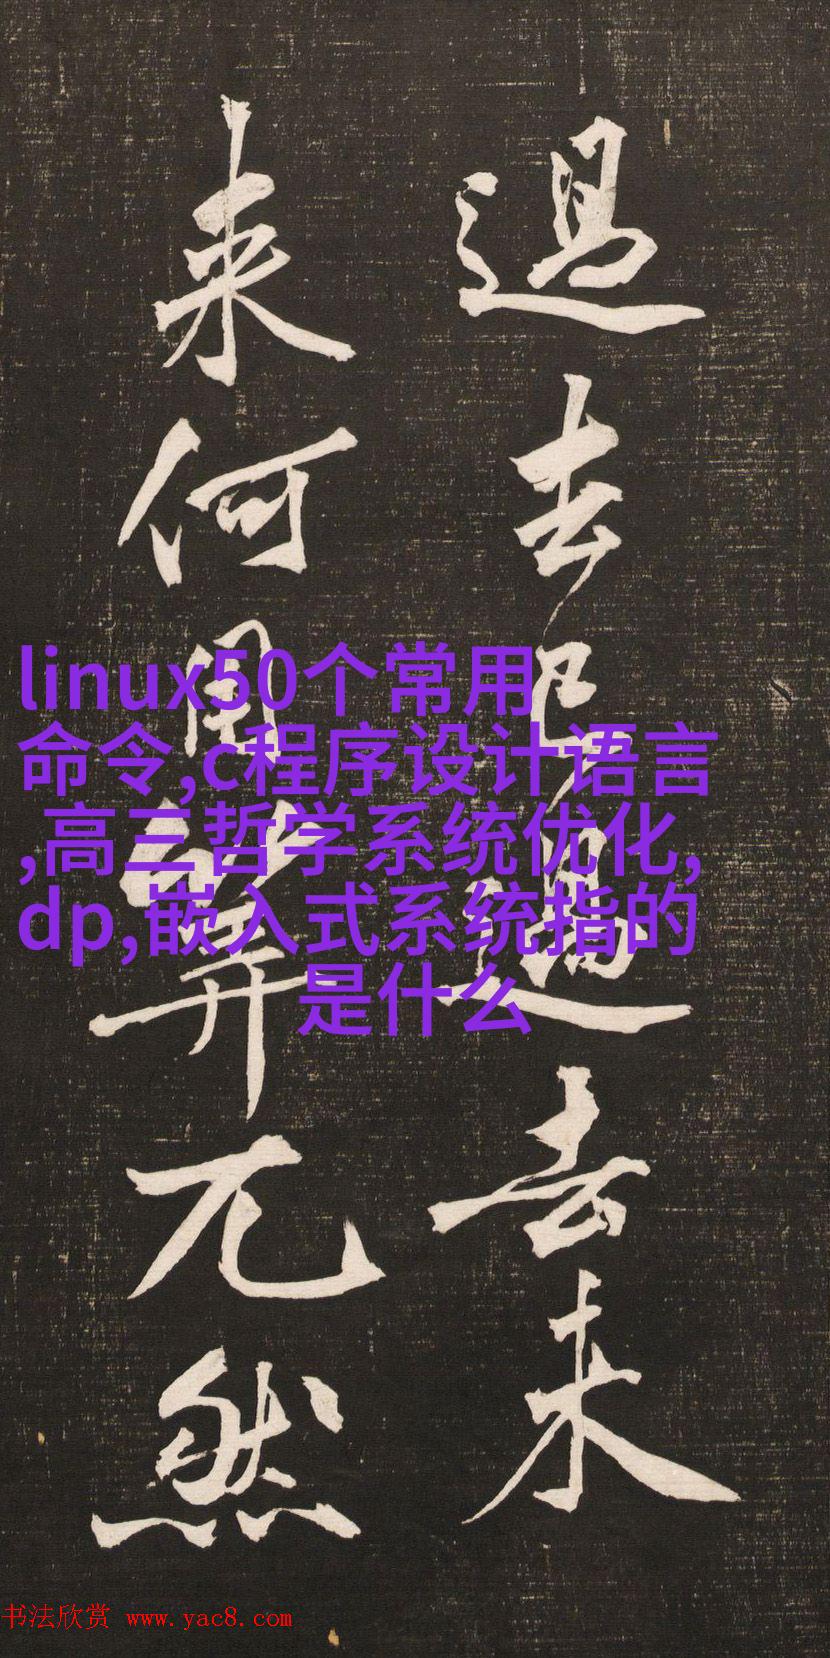 過去已過去未
来何用筭兀然
linux50个常用
命令,c程序设计语言
,高三哲学系统优化,
dp,嵌入式系统指的
是什么
书法欣赏 www.yac8.com